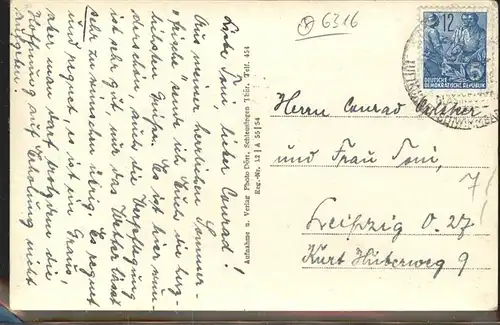 6316
12
DEUTSCHE
DEMOKRATISCHE REPUBLIK
Liebe Toni, lieber Conrad!
Aus meiner herrlichen Sommer-
"frische" sende ich Euch die herz-
lichsten Grüße. Es ist hier wun-
derschön, auch die Verpflegung
ist sehr gut, nur das Wetter lässt
sehr zu wünschen übrig. Es regnet
und regnet, es ist ein Graus,
aber man darf trotzdem die
Hoffnung auf Erholung nicht
aufgeben.
Aufnahme u. Verlag Photo Dörr, Schleusingen Thür. Telf. 454
Reg.-Nr. 12 | A 55 | 54
Herrn Conrad
und Frau Toni,
Leipzig O. 27
Kurt Huberweg 9
7/